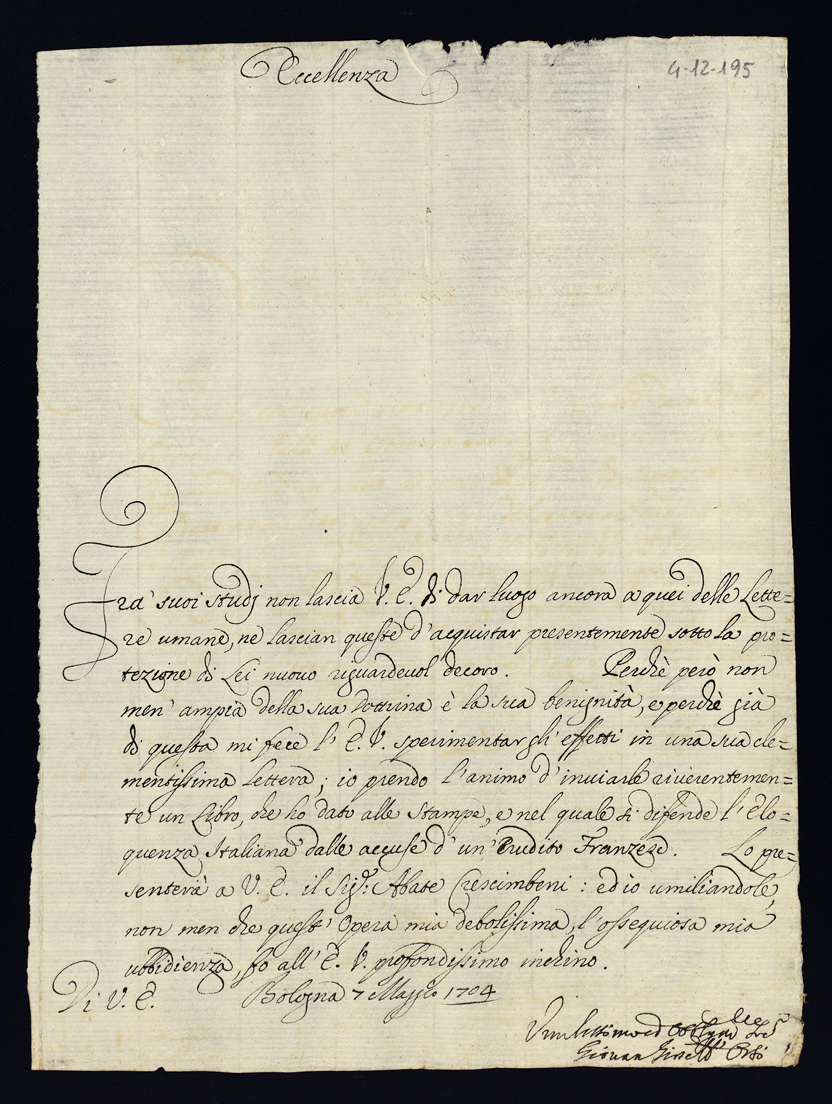 Eccellenza
4-12-195
Fra' suoi studj non lascia V. E. di dar luogo ancora a quei delle Lette=
re umane, ne lascian queste d'acquistar presentemente sotto la pro=
tezione di Lei nuovo riguardevol decoro. Perchè però non
men' ampia della sua Dottrina è la sua benignità, e perchè già
di questa mi fece l' E. V. sperimentar gli effetti in una sua cle=
mentissima lettera; io prendo l'animo d'inviarle riverentemen=
te un Libro, che ho dato alle Stampe, e nel quale si difende l' Elo=
quenza Italiana dalle accuse d' un' Erudito Franzese. Lo pre=
senterà a V. E. il Sig.r Abate Crescimbeni: ed io umiliandole,
non men che quest' Opera mia debolissima, l'ossequiosa mia
ubbidienza, fo all' E. V. profondissimo inchino.
Di V. E. Bologna 7 Maggio 1704
Umilissimo ed
Orsi